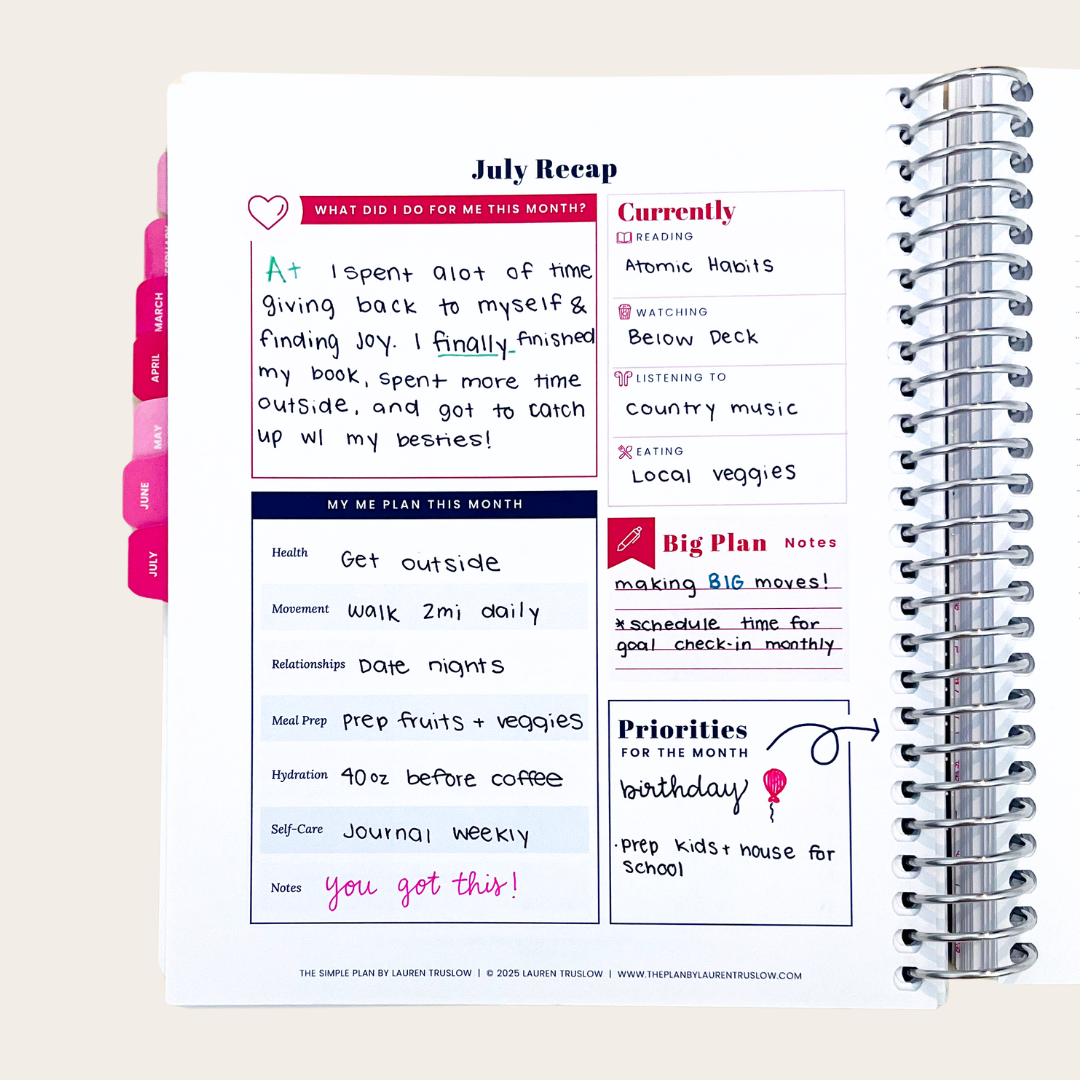 July Recap
WHAT DID I DO FOR ME THIS MONTH?
A+ I spent alot of time
giving back to myself &
finding Joy. I finally finished
my book, spent more time
outside, and got to catch
up w/ my besties!
MY ME PLAN THIS MONTH
Health Get outside
Movement walk 2mi daily
Relationships Date nights
Meal Prep prep fruits + veggies
Hydration 40oz before coffee
Self-Care Journal weekly
Notes you got this!
Currently
READING
Atomic Habits
WATCHING
Below Deck
LISTENING TO
country music
EATING
Local veggies
Big Plan Notes
making BIG moves!
*schedule time for
goal check-in monthly
Priorities
FOR THE MONTH
birthday
·prep kids + house for
school
THE SIMPLE PLAN BY LAUREN TRUSLOW | © 2025 LAUREN TRUSLOW | WWW.THEPLANBYLAURENTRUSLOW.COM
MARCH
APRIL
MAY
JUNE
JULY